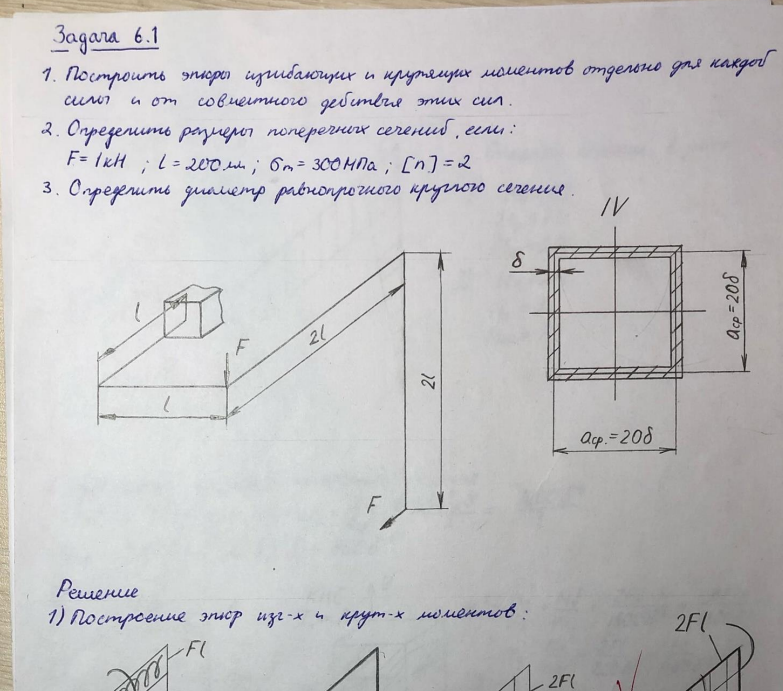 Задача 6.1
1. Построить эпюры изгибающих и крутящих моментов отдельно для каждой
силы и от совместного действия этих сил.
2. Определить размеры поперечных сечений, если:
F = 1кН ; l = 200мм ; σт = 300МПа ; [n] = 2
3. Определить диаметр равнопрочного круглого сечения.
IV
δ
aср = 20δ
aср. = 20δ
l
F
2l
l
2l
F
Решение
1) Построение эпюр изг-х и крут-х моментов:
Fl
2Fl
2Fl